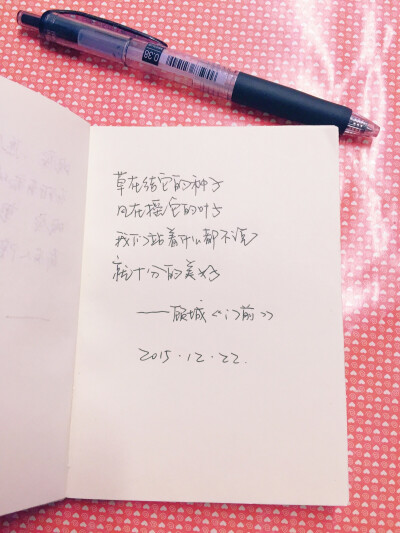 0.38
草在结它的种子
风在摇它的叶子
我们站着什么都不说
就十分的美好
——顾城《门前》
2015.12.22.